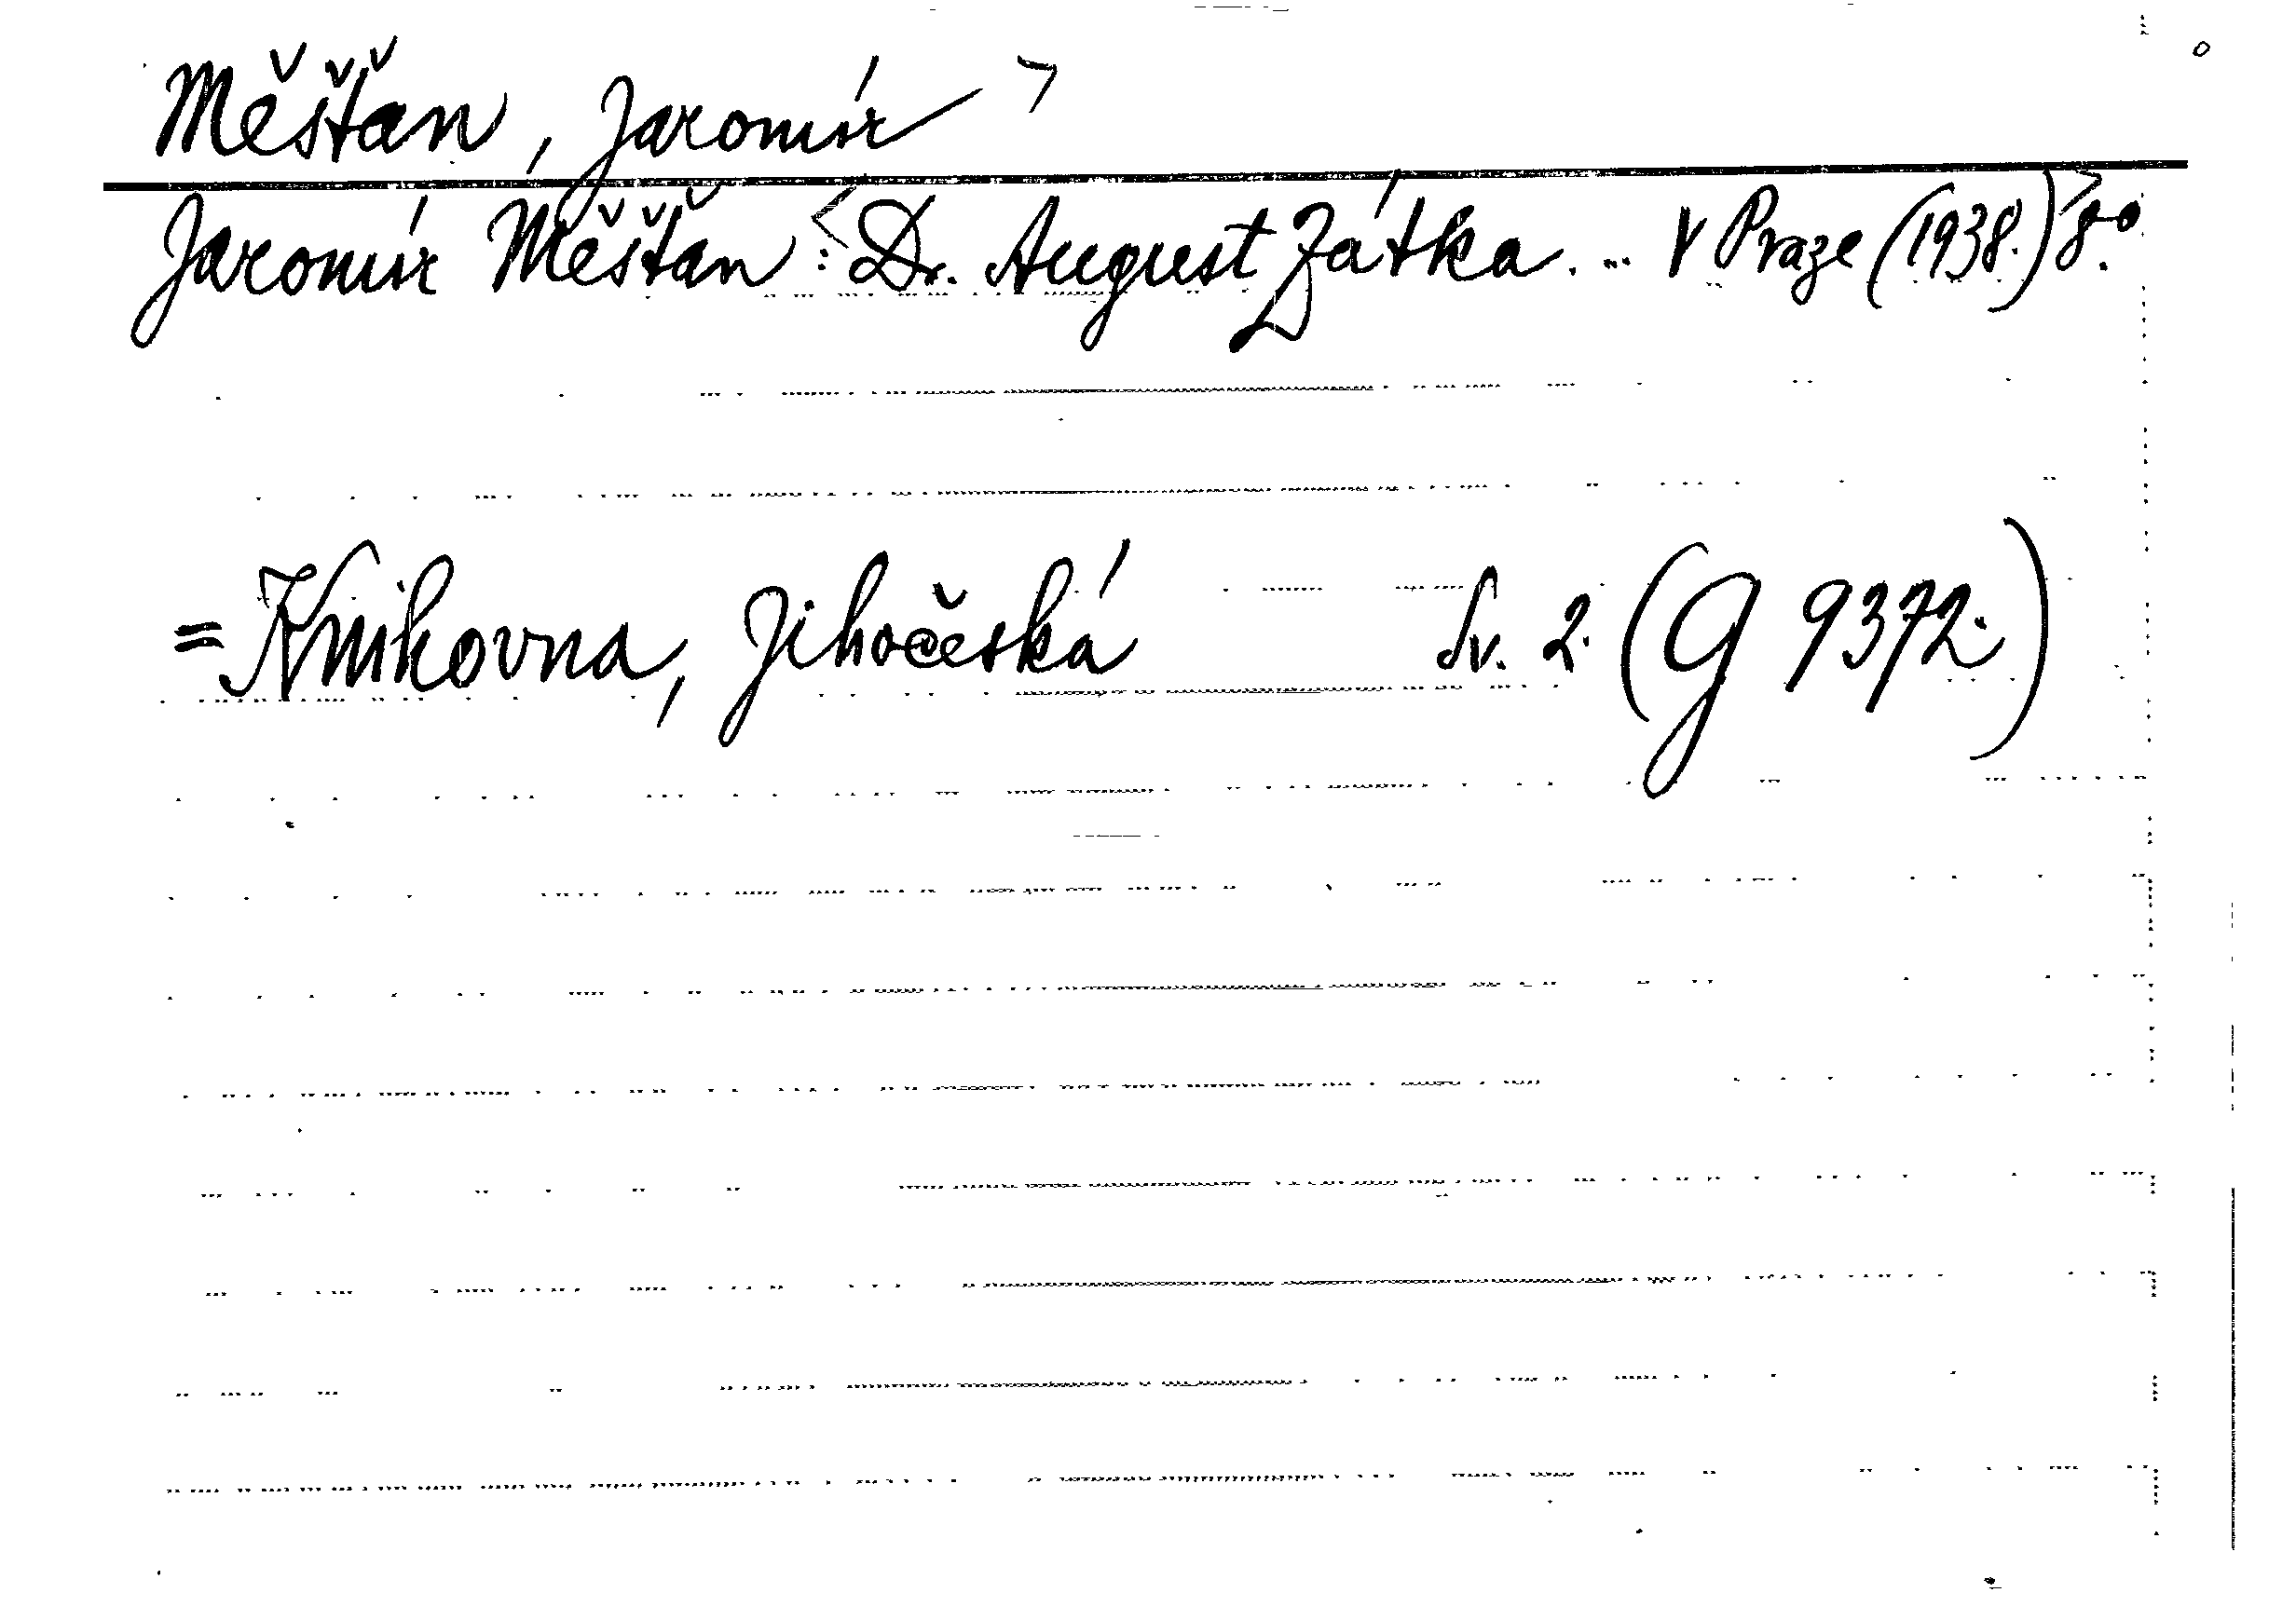 Měšťan, Jaromír >
Jaromír Měšťan : < Dr. August Zátka. ... V Praze (1938.) > 8°.
= Knihovna, Jihočeská sv. 2. (G 9372.)